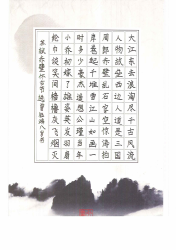 大江东去浪淘尽千古风流
人物故垒西边人道是三国
周郎赤壁乱石穿空惊涛拍
岸卷起千堆雪江山如画一
时多少豪杰遥想公瑾当年
小乔初嫁了雄姿英发羽扇
纶巾谈笑间樯橹灰飞烟灭
苏轼赤壁怀古节选 八岁书